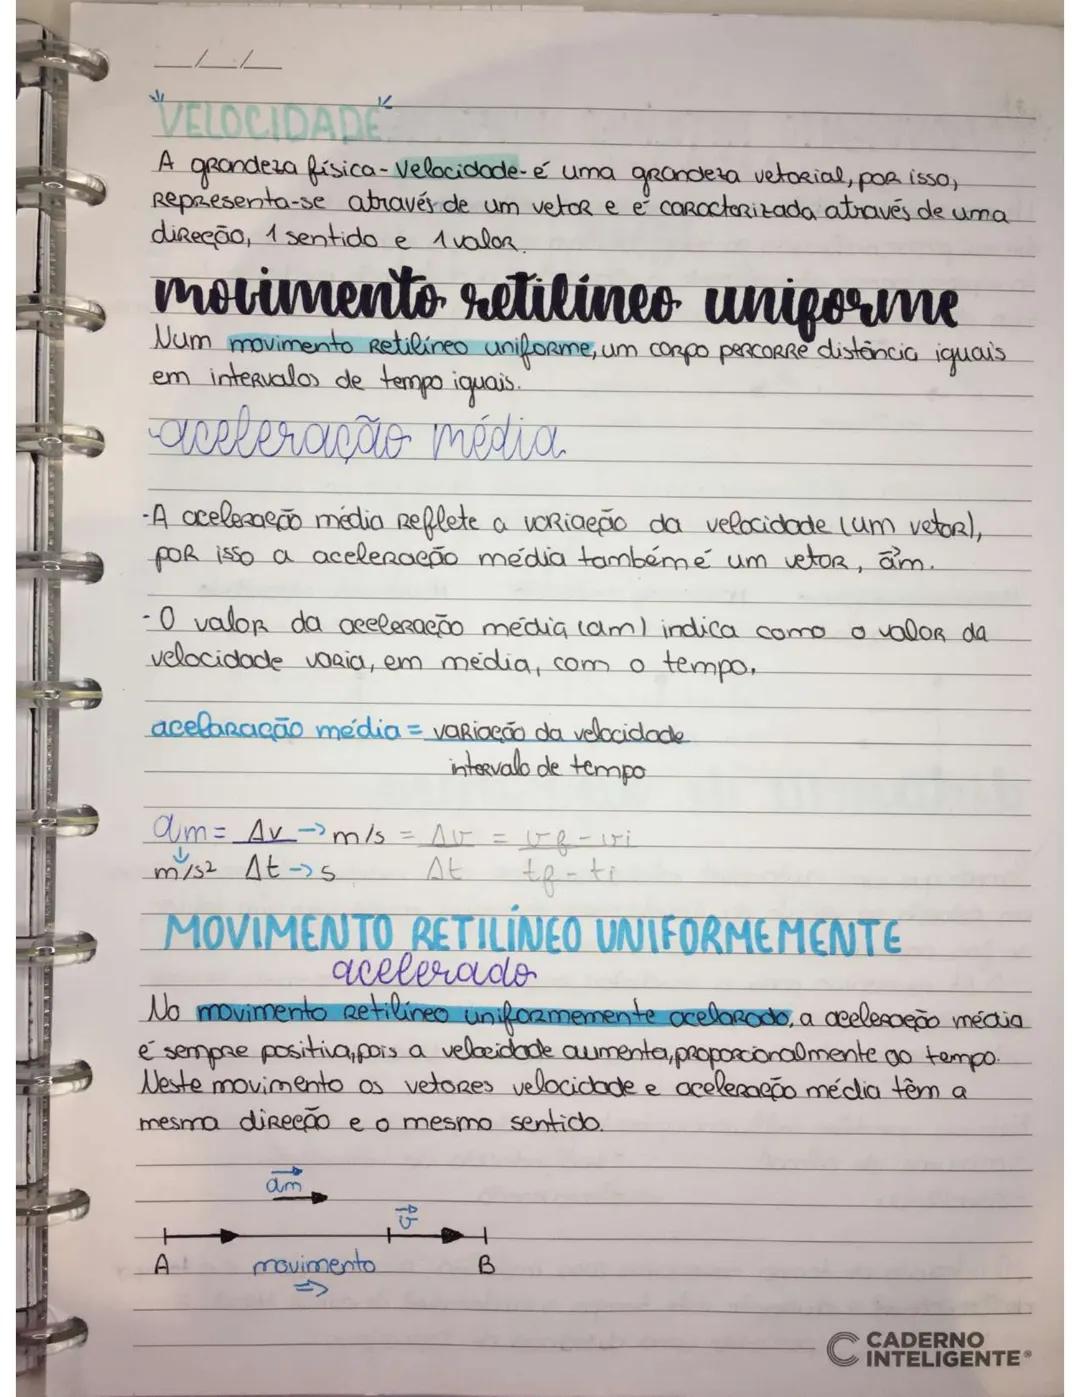 __/__/__
VELOCIDADE
A grandeza física - velocidade - é uma grandeza vetorial, por isso,
representa-se através de um vetor e é caracterizada através de uma
direção, 1 sentido e 1 valor.
movimento retilíneo uniforme
Num movimento retilíneo uniforme, um corpo percorre distância iguais
em intervalos de tempo iguais.
aceleração média
- A aceleração média reflete a variação da velocidade (um vetor),
por isso a aceleração média também é um vetor, a⃗m.
- O valor da aceleração média (am) indica como o valor da
velocidade varia, em média, com o tempo.
acelaração média = variação da velocidade
intervalo de tempo
am = Δv → m/s = Δv = vf - vi
m/s² Δt → s Δt tf - ti
MOVIMENTO RETILÍNEO UNIFORMEMENTE
acelerado
No movimento retilíneo uniformemente acelarado, a aceleração média
é sempre positiva, pois a velocidade aumenta, proporcionalmente ao tempo.
Neste movimento os vetores velocidade e aceleração média têm a
mesma direção e o mesmo sentido.
a⃗m
v⃗
A movimento B
⇒
CADERNO
INTELIGENTE®